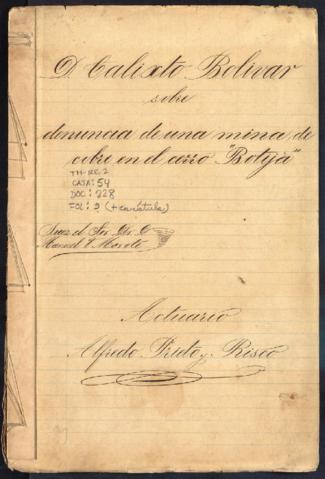 D. Calixto Bolivar
sobre
denuncia de una mina de
cobre en el cerro "Botija"
TH-RE.2
CAJA: 54
DOC: 228
FOL: 9 (+ carátula)
Juez el Sr. Dr. D.
Manuel V. Morote
Actuario
Alfredo Prieto y Risco